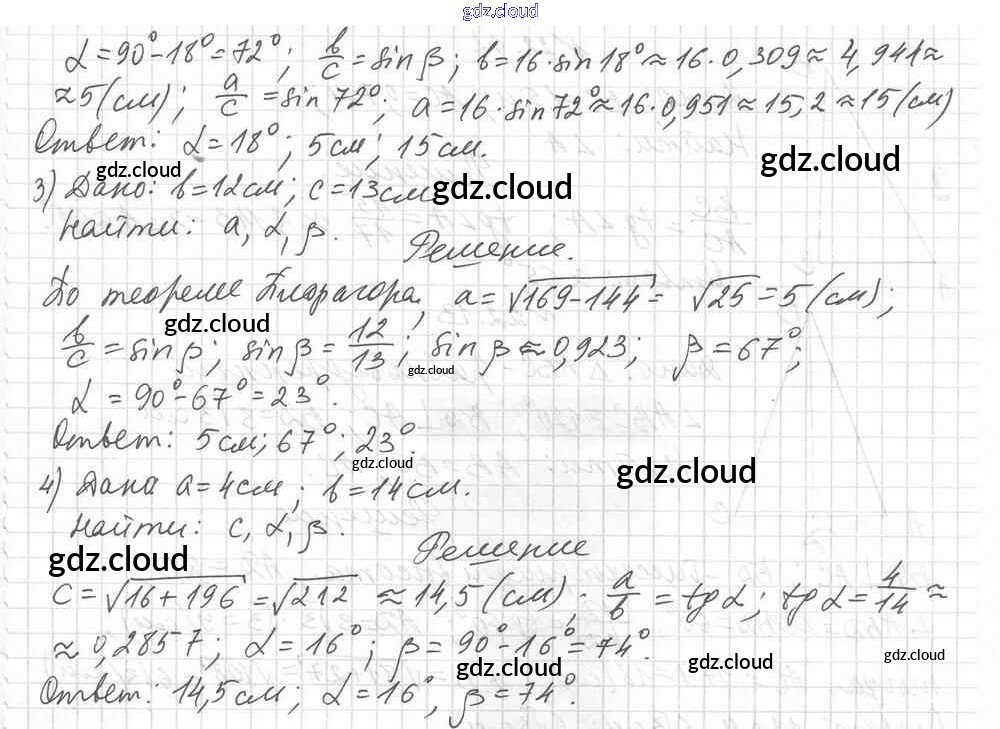 gdz.cloud
α = 90° - 18° = 72°; b/c = sin β; b = 16 · sin 18° ≈ 16 · 0,309 ≈ 4,941 ≈
≈ 5 (см); a/c = sin 72°; a = 16 · sin 72° ≈ 16 · 0,951 ≈ 15,2 ≈ 15 (см)
Ответ: α = 18°; 5 см; 15 см.
gdz.cloud
gdz.cloud
3) Дано: b = 12 см; c = 13 см.
gdz.cloud
Найти: a, α, β.
Решение.
По теореме Пифагора, a = √169-144 = √25 = 5 (см);
gdz.cloud
b/c = sin β; sin β = 12/13; sin β ≈ 0,923; β = 67°;
gdz.cloud
α = 90° - 67° = 23°.
Ответ: 5 см; 67°; 23°.
gdz.cloud
gdz.cloud
4) Дана a = 4 см; b = 14 см.
Найти: c, α, β.
Решение
gdz.cloud
c = √16+196 = √212 ≈ 14,5 (см); a/b = tg α; tg α = 4/14 ≈
≈ 0,2857; α = 16°; β = 90° - 16° = 74°.
gdz.cloud
gdz.cloud
gdz.cloud
Ответ: 14,5 см; α = 16°, β = 74°.